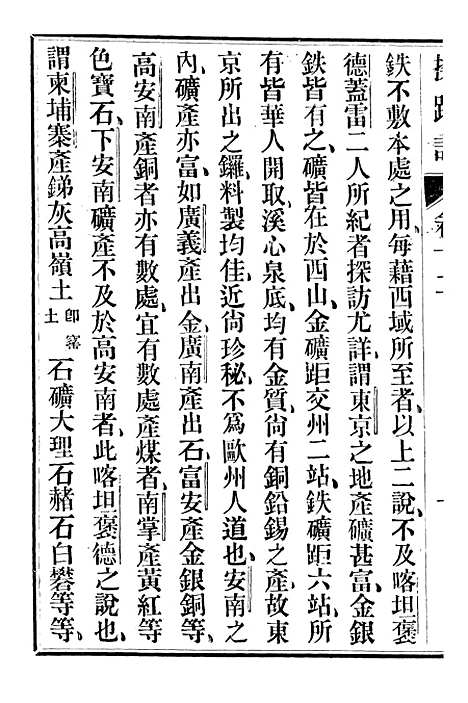 鉄不敷本處之用、每藉西域所至者、以上二說、不及喀坦褒
德蓋雷二人所紀者探訪尤詳、謂東京之地產礦甚富、金銀
鉄皆有之、礦皆在於西山、金礦距交州二站、鉄礦距六站、所
有皆華人開取、溪心泉底、均有金質、尙有銅鉛錫之產、故東
京所出之鑼、料製均佳、近尙珍秘、不爲歐州人道也、安南之
內、礦產亦富、如廣義產出金、廣南產出石、富安產金銀銅等、
高安南產銅者亦有數處、宜有數處產煤者、南掌產黃紅等
色寶石、下安南礦產不及於高安南者、此喀坦褒德之說也、
謂柬埔寨產銻灰高嶺土卽窰土石礦大理石赭石白礬等等、